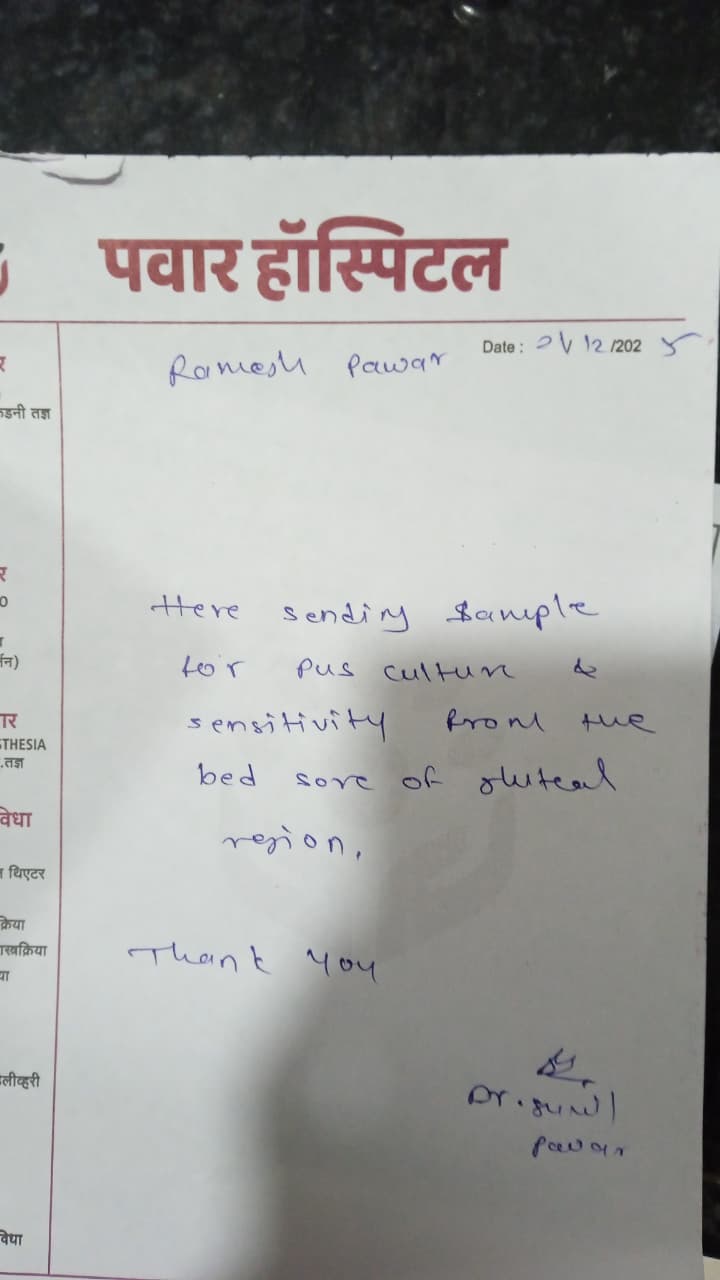 पवार हॉस्पिटल
Date : 01/12/2025
Ramesh Pawar
र
कडनी तज्ञ
र
0
न)
ार
STHESIA
.तज्ञ
विधा
न थिएटर
क्रिया
ास्त्रक्रिया
या
लीव्हरी
विधा
Here sending sample
for pus culture &
sensitivity from the
bed sore of gluteal
region.
Thank you
Dr. Sunil
Pawar